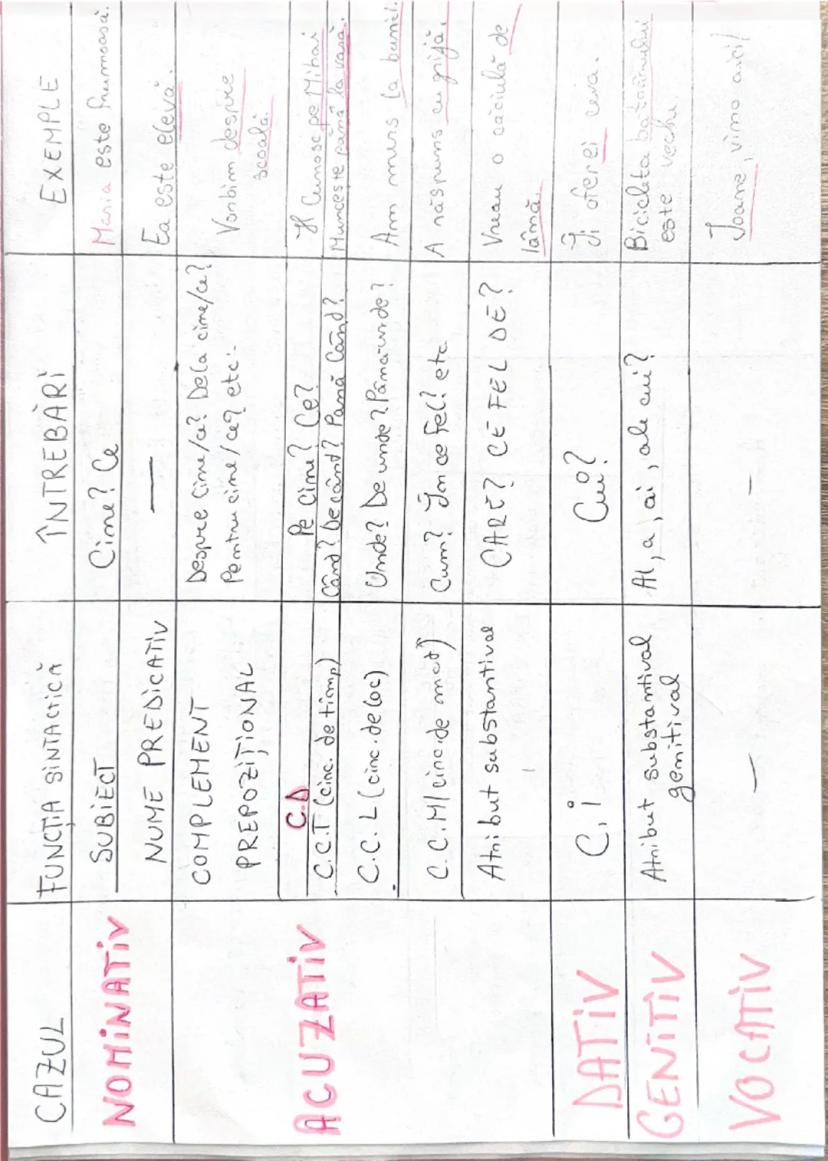 CAZUL FUNCȚIA SINTACTICĂ ÎNTREBĂRI EXEMPLE
NOMINATIV
SUBIECT Cine? Ce Maria este frumoasă.
NUME PREDICATIV — Ea este elevă.
ACUZATIV
COMPLEMENT Despre cine/ce? De la cine/ce? Vorbim despre
PREPOZIȚIONAL Pentru cine/ce? etc. școală.
C.D Pe cine? Ce? Îl cunosc pe Mihai
C.C.T (circ. de timp) Când? De când? Până când? Muncește până la vară.
C.C.L (circ. de loc) Unde? De unde? Până unde? Am mers la bunici.
C.C.M (circ. de mod) Cum? În ce fel? etc. A răspuns cu grijă.
Atribut substantival CARE? CE FEL DE? Vreau o căciulă de
lână.
DATIV C.i Cui? Îi oferei ceva.
GENITIV Atribut substantival Al, a, ai, ale cui? Bicicleta batrânului
genitival este veche.
VOCATIV — — Ioane, vino aici!